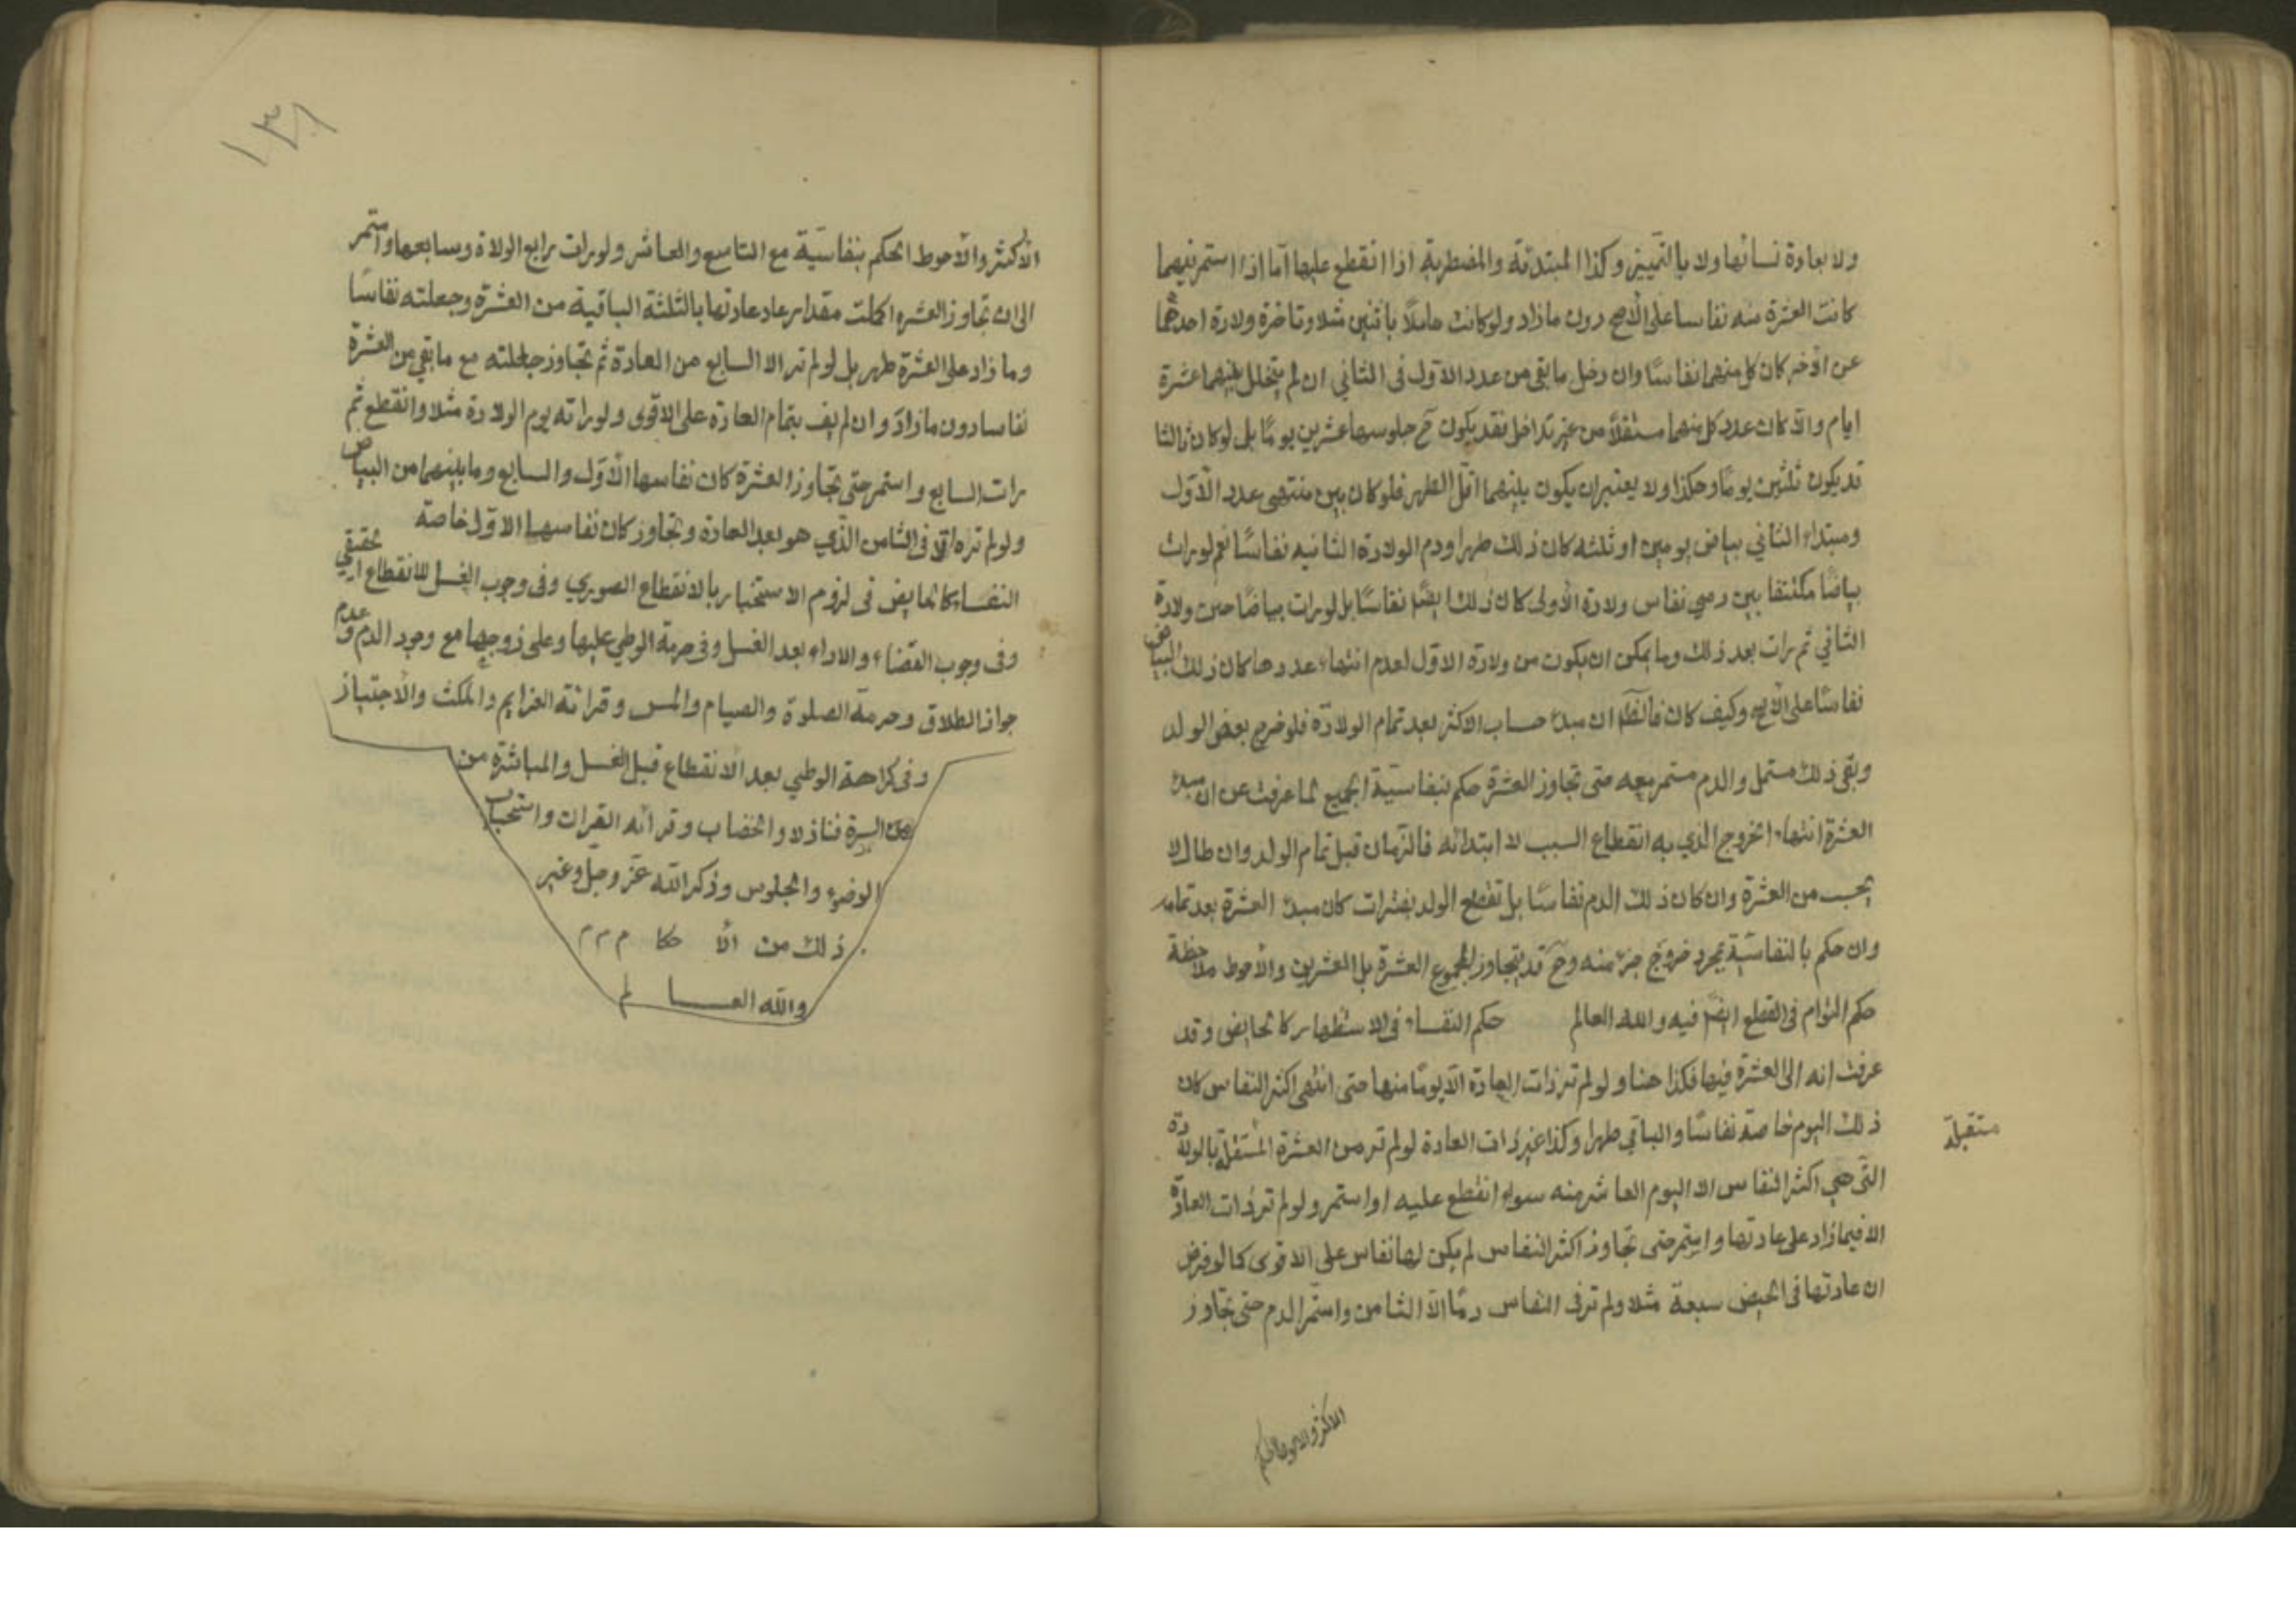 ولا بعادة نسائها ولا بالتمييز وكذا المبتدئة والمضطربة اذا انقطع عليها اما اذا استمر فيهما
كانت العشرة منه نفاسا على الاصح دون ما زاد ولو كانت حاملا باثنين مثلا وتاخرة ولادة احدهما
عن الاخر كان كل منهما نفاسًا وان دخل ما بقى من عدد الاول فى الثاني ان لم يتخلل بينهما عشرة
ايام والا كان عدد كل منهما مستقلا من غير تداخل فقد يكون ح جلوسها عشرين يومًا بل لو كان ثالثا
قد يكون ثلثين يومًا وهكذا ولا يعتبر ان يكون بينهما اقل الطهر فلو كان بين منتهى عدد الاول
ومبتداء الثاني بياض يومين او ثلثه كان ذلك طهرا ودم الولادة الثانيه نفاسًا نعم لو رات
بياضًا مكتنفا بين دمي نفاس ولادة الاولى كان ذلك ايضًا نفاسًا بل لو رات بياضًا حين ولادة
الثاني ثم رات بعد ذلك وما يمكن ان يكون من ولادة الاول لعدم انتهاء عددها كان ذلك البياض
نفاسًا على الاصح وكيف كان فالظ ان مبدء حساب الاكثر بعد تمام الولادة فلو خرج بعض الولد
وبقى ذلك مستمل والدم مستمر معه حتى تجاوز العشرة حكم بنفاسية الجميع لما عرفت عن ان مبدء
العشرة انتهاء الخروج الذي به انقطاع السبب لا ابتدائه فالزمان قبل تمام الولد وان طال لا
يحسب من العشرة وان كان ذلك الدم نفاسًا بل تقطع الولد بفترات كان مبدء العشرة بعد تمامه
وان حكم بالنفاسية بمجرد خروج جزء منه وح قد يتجاوز المجموع العشرة بل العشرين والاحوط ملاحظة
حكم التوام فى القطع ايضًا فيه والله العالم حكم النفساء فى الاستظهار كالحايض وقد
عرفت انه الى العشرة فيها فكذا هنا ولو لم تر ذات العادة الا يومًا منها حتى انتهى اكثر النفاس كان
ذلك اليوم خاصة نفاسًا والباقي طهرا وكذا غير ذات العادة لو لم تر من العشرة المستقلة بالولادة
متقبلة
التى هي اكثر النفاس الا اليوم العاشر منه سواء انقطع عليه او استمر ولو لم تر ذات العادة
الا فيما زاد على عادتها واستمر حتى تجاوز اكثر النفاس لم يكن لها نفاس على الاقوى كما لو فرض
ان عادتها فى الحيض سبعة مثلا ولم تر فى النفاس دمًا الا الثامن واستمر الدم حتى تجاوز
الاكثر والاحوط الحكم
١٣٦
الاكثر والاحوط الحكم بنفاسية مع التاسع والعاشر ولو رات رابع الولادة وسابعها واستمر
الى ان تجاوز العشره اكملت مقدار عاد عادتها بالثلثة الباقية من العشرة وجعلته نفاسًا
وما زاد على العشرة طهر بل لو لم تر الا السابع من العادة ثم تجاوز جعلته مع ما بقي من العشرة
نفاسا دون ما زاد وان لم يف بتمام العادة على الاقوى ولو راته يوم الولادة مثلا وانقطع ثم
رات السابع واستمر حتى تجاوز العشرة كان نفاسها الاول والسابع وما بينهما من البياض
ولو لم تراه الا فى الثامن الذي هو بعد العادة وتجاوز كان نفاسها الاول خاصة
النفساء كالحايض فى لزوم الاستخبار بالانقطاع الصوري وفى وجوب الغسل للانقطاع الحقيقي
وفى وجوب القضاء والاداء بعد الغسل وفى حرمة الوطي عليها وعلى زوجها مع وجود الدم وعدم
جواز الطلاق وحرمة الصلوة والصيام والمس وقرائة العزايم والمكث والاجتياز
وفى كراهة الوطي بعد الانقطاع قبل الغسل والمباشرة من
من السرة فنازلا والخضاب وقرائه القران واستحباب
الوضوء والجلوس وذكر الله عز وجل وغير
ذلك من الا حكا م م م
والله العــا لم